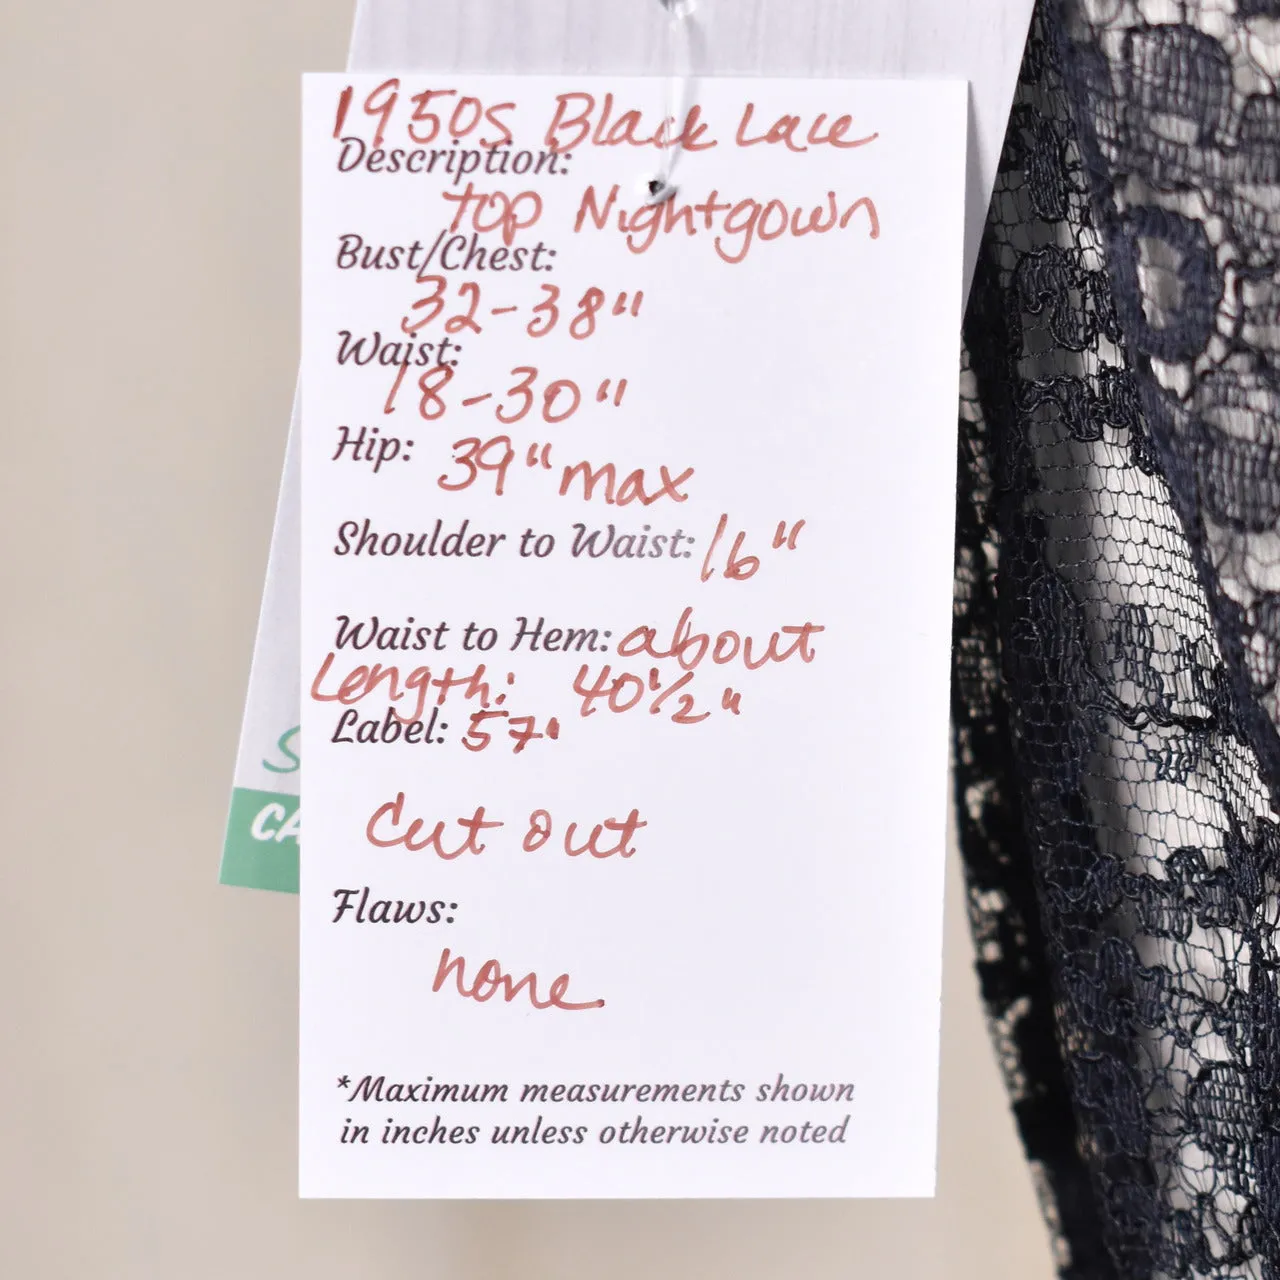 1950s Black Lace
Description:
top Nightgown
Bust/Chest:
32-38"
Waist:
18-30"
Hip: 39" max
Shoulder to Waist: 16"
Waist to Hem: about
Length: 40 1/2"
Label: 57"
Cut out
Flaws:
none
*Maximum measurements shown
in inches unless otherwise noted
S
CA